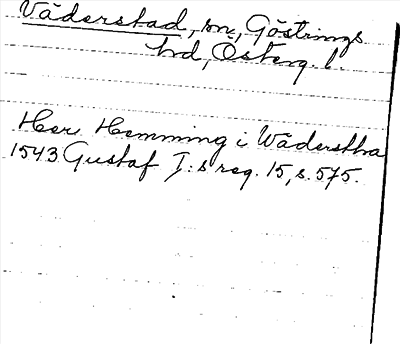 Väderstad, sn, Göstrings
hd, Österg. l.
Herr Hemming i Wäderstha
1543 Gustaf I:s reg. 15, s. 575.